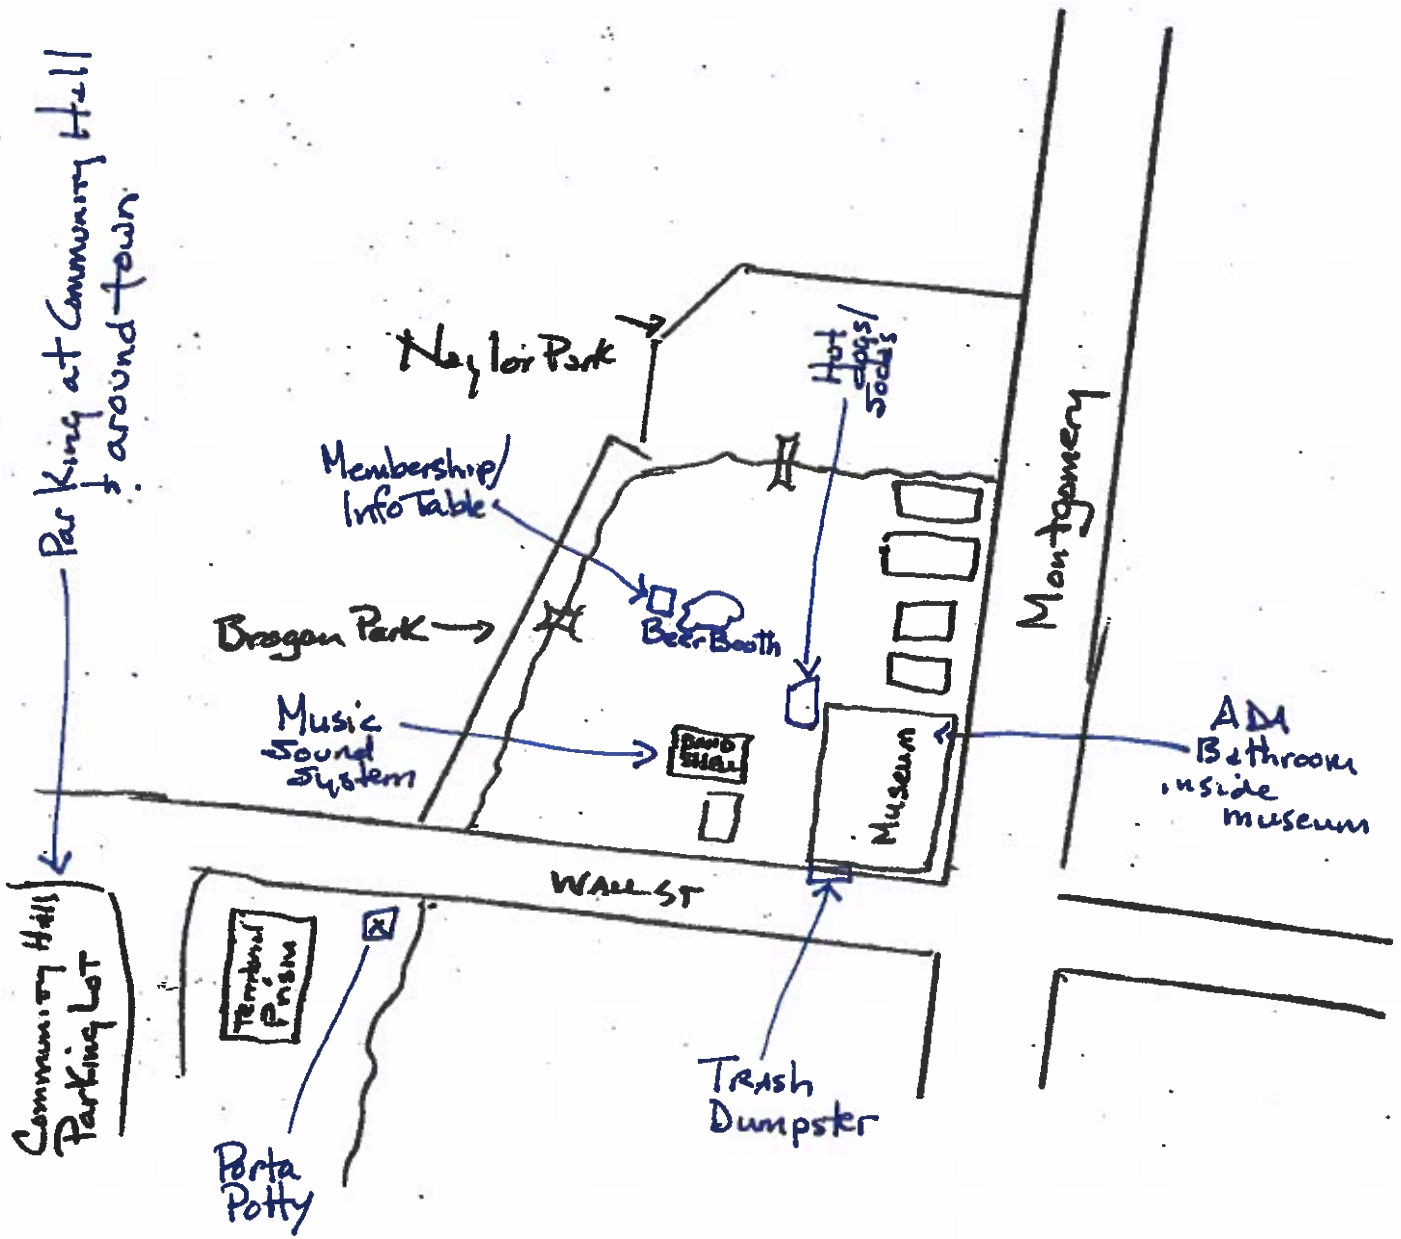 Parking at Community Hall
& around town.
Naylor Park
Hot
dogs/
Sodas
Membership/
Info Table
Montgomery
Brogan Park
Beer Booth
Music
Sound
System
BAND
SHELL
Museum
ADA
Bathroom
inside
museum
WALL ST
Community Hall
Parking Lot
Territorial
Prison
X
Trash
Dumpster
Porta
Potty